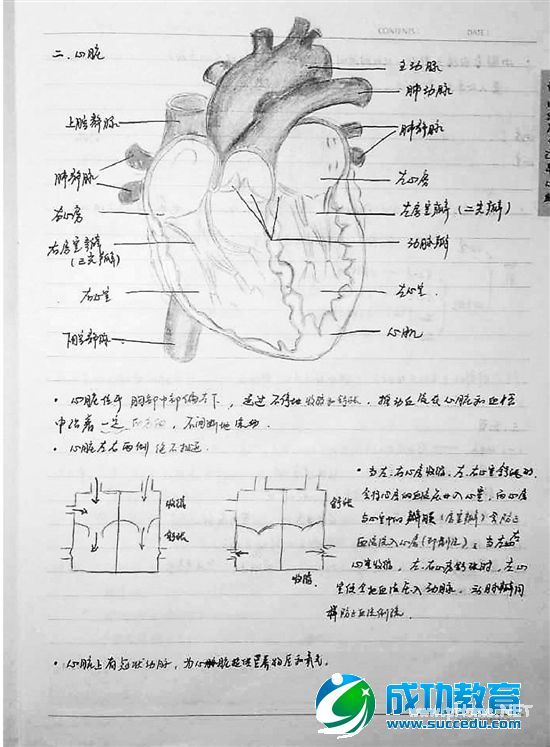 CONTENTS:
DATE:
二.心脏
主动脉
肺动脉
上腔静脉
肺静脉
肺静脉
左心房
右心房
左房室瓣(二尖瓣)
右房室瓣
(三尖瓣)
动脉瓣
右心室
左心室
下腔静脉
心肌
· 心脏位于胸部中部偏左下,通过不停地收缩和舒张,推动血液在心脏和血管
中沿着一定的方向,不间断地流动.
· 心脏左右两侧绝不相通.
收缩
舒张
舒张
收缩
· 当左.右心房收缩,左.右心室舒张时,
会将心房的血液压入心室,而心房
与心室中的瓣膜(房室瓣)会防止
血液流入心房(即倒流);当左右
心室收缩,左.右心房舒张时,左心
室便会把血液压入动脉,动脉瓣
防止血液倒流.
· 心脏上有冠状动脉,为心脏提供营养物质和氧气.
成功教育
www.succedu.com